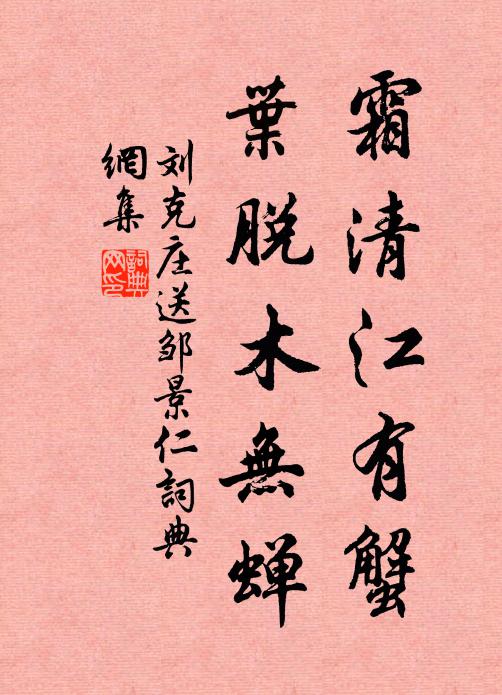 霜清江有蟹
葉脱木無蝉
刘克庄送邹景仁詞典
網集
詞典
网印